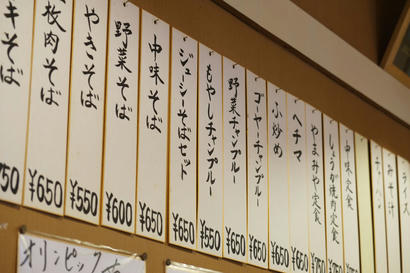 キそば
750
焼肉そば
¥650
やきそば
¥550
野菜そば
¥600
中味そば
¥650
ジューシーそばセット
¥650
もやしチャンプルー
¥550
野菜チャンプルー
¥650
ゴーヤーチャンプルー
¥650
ふ炒め
¥650
ヘチマ
¥650
やまみや定食
しょうが焼肉定食
中味定食
みそ汁
ライス
オリンピック